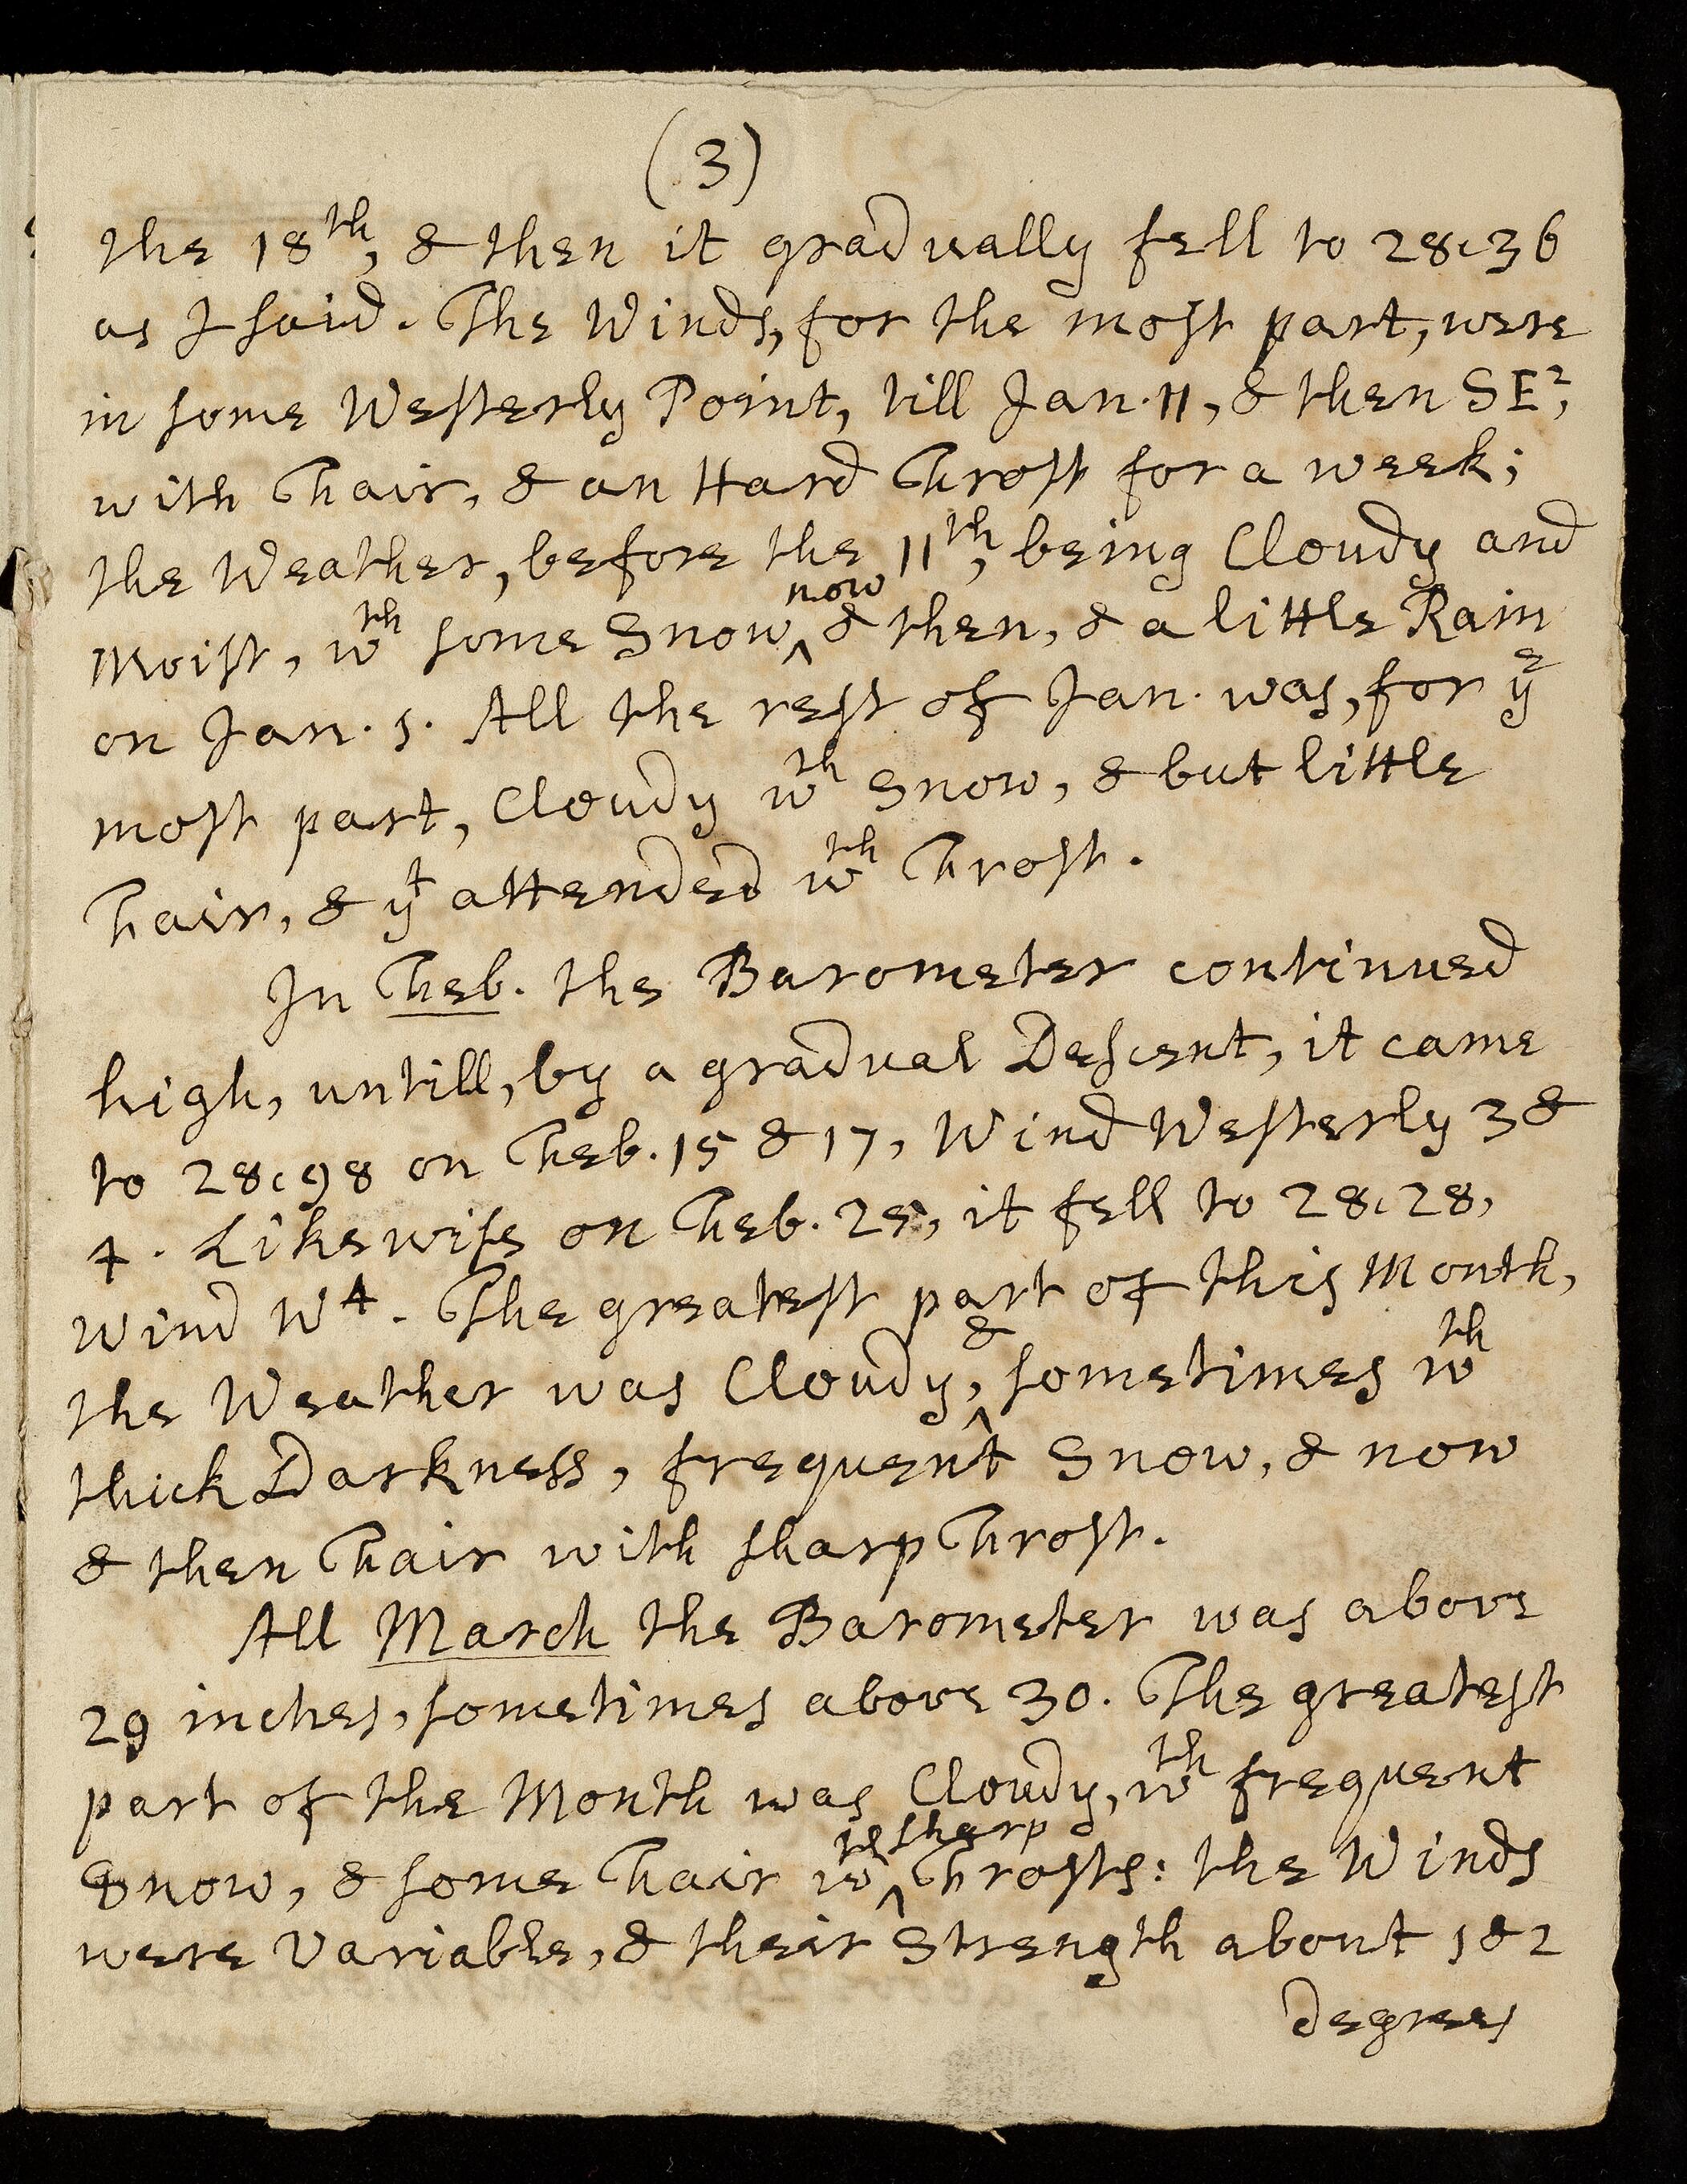 (3)
the 18th, & then it gradually fell to 28,36
as I said. The Winds, for the most part, were
in some Westerly Point, till Jan. 11, & then SE2,
with Fair, & an Hard Frost for a week;
the Weather, before the 11th, being Cloudy and
now
Moist, wth some Snow ^ & then, & a little Rain
on Jan. 1. All the rest of Jan. was, for ye
most part, Cloudy wth Snow, & but little
Fair, & yt attended wth Frost.
In Feb. the Barometer continued
high, untill, by a gradual Descent, it came
to 28,98 on Feb. 15 & 17, Wind Westerly 3 &
4. Likewise on Feb. 25, it fell to 28,28,
Wind W4. The greatest part of this Month,
&
the Weather was Cloudy, ^ sometimes wth
thick Darkness, frequent Snow, & now
& then Fair with sharp Frost.
All March the Barometer was above
29 inches, sometimes above 30. The greatest
part of the Month was Cloudy, wth frequent
sharp
Snow, & some Fair wth ^ Frosts: the Winds
were Variable, & their Strength about 1 & 2
degrees